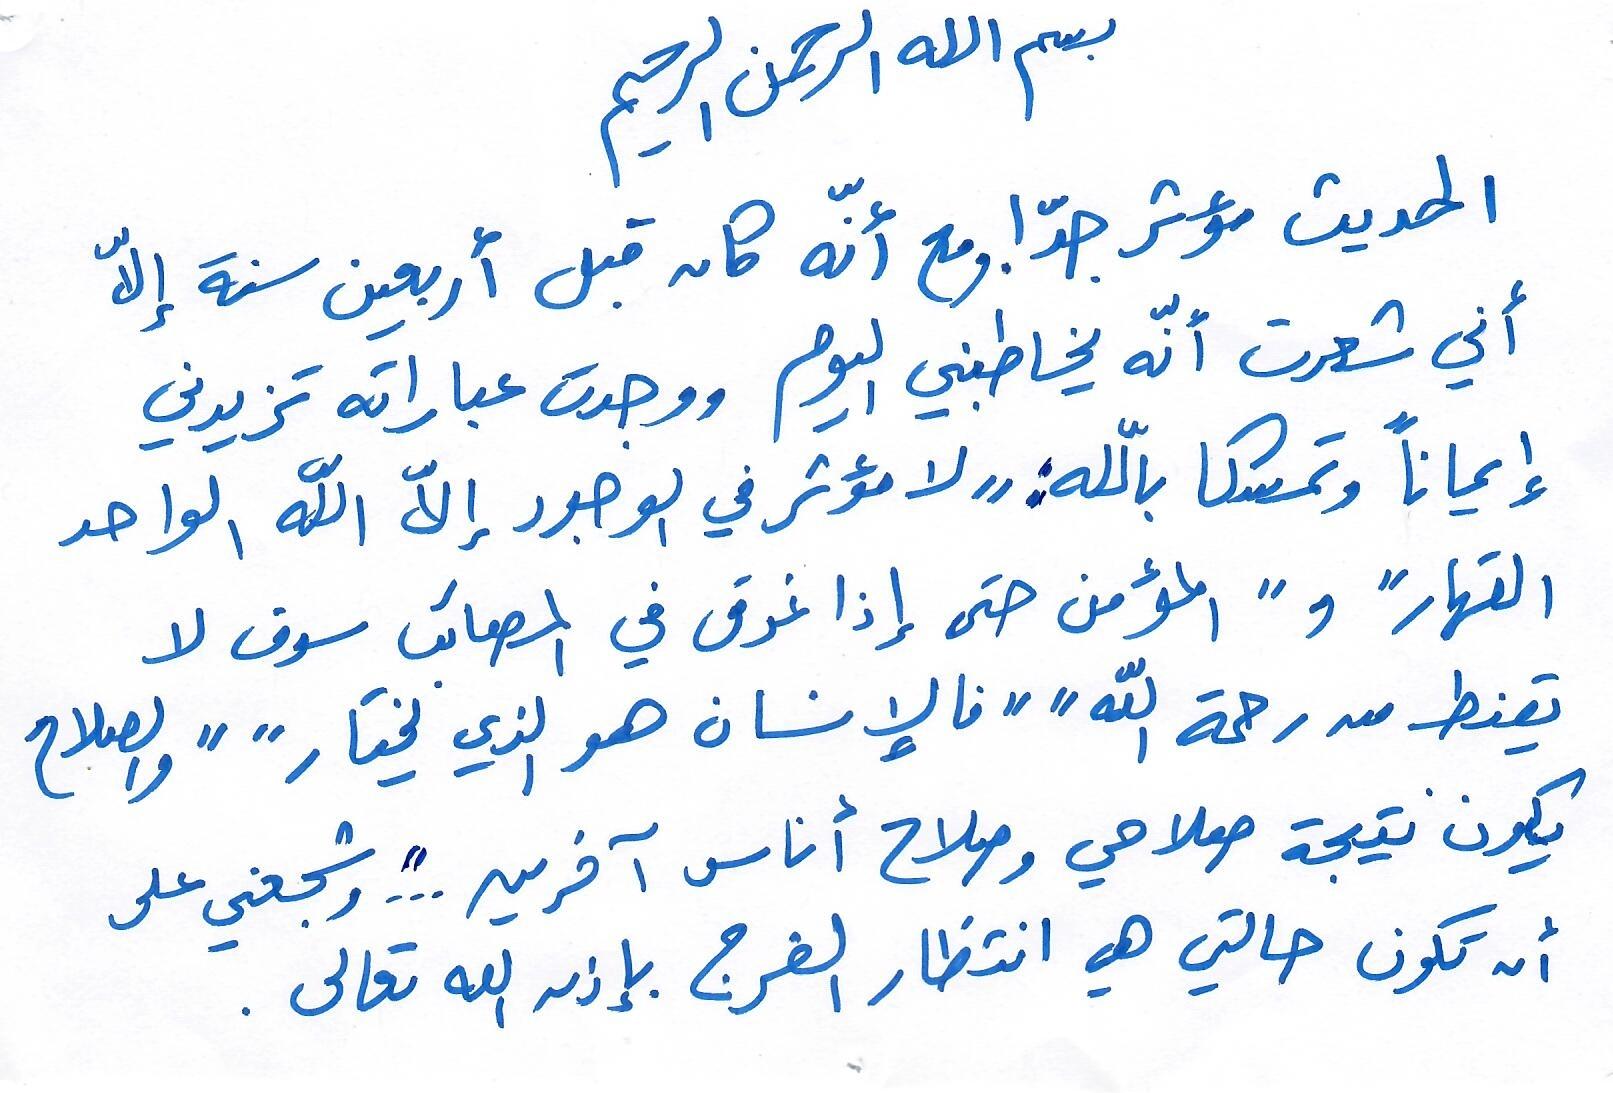 بسم الله الرحمن الرحيم
الحديث مؤثر جدّا. ومع أنّه كان قبل أربعين سنة إلاّ
أني شعرت أنّه يخاطبني اليوم ووجدت عباراته تزيدني
إيماناً وتمسكا بالله: "لا مؤثر في الوجود إلاّ اللّه الواحد
القهار" و" المؤمن حتى إذا غرق في المصائب سوف لا
يقنط من رحمة اللّه" "فالإنسان هو الذي يختار" "والصلاح
يكون نتيجة صلاحي وصلاح أناس آخرين ..." وشجعني على
أن تكون حالتي هي انتظار الفرج بإذن الله تعالى.